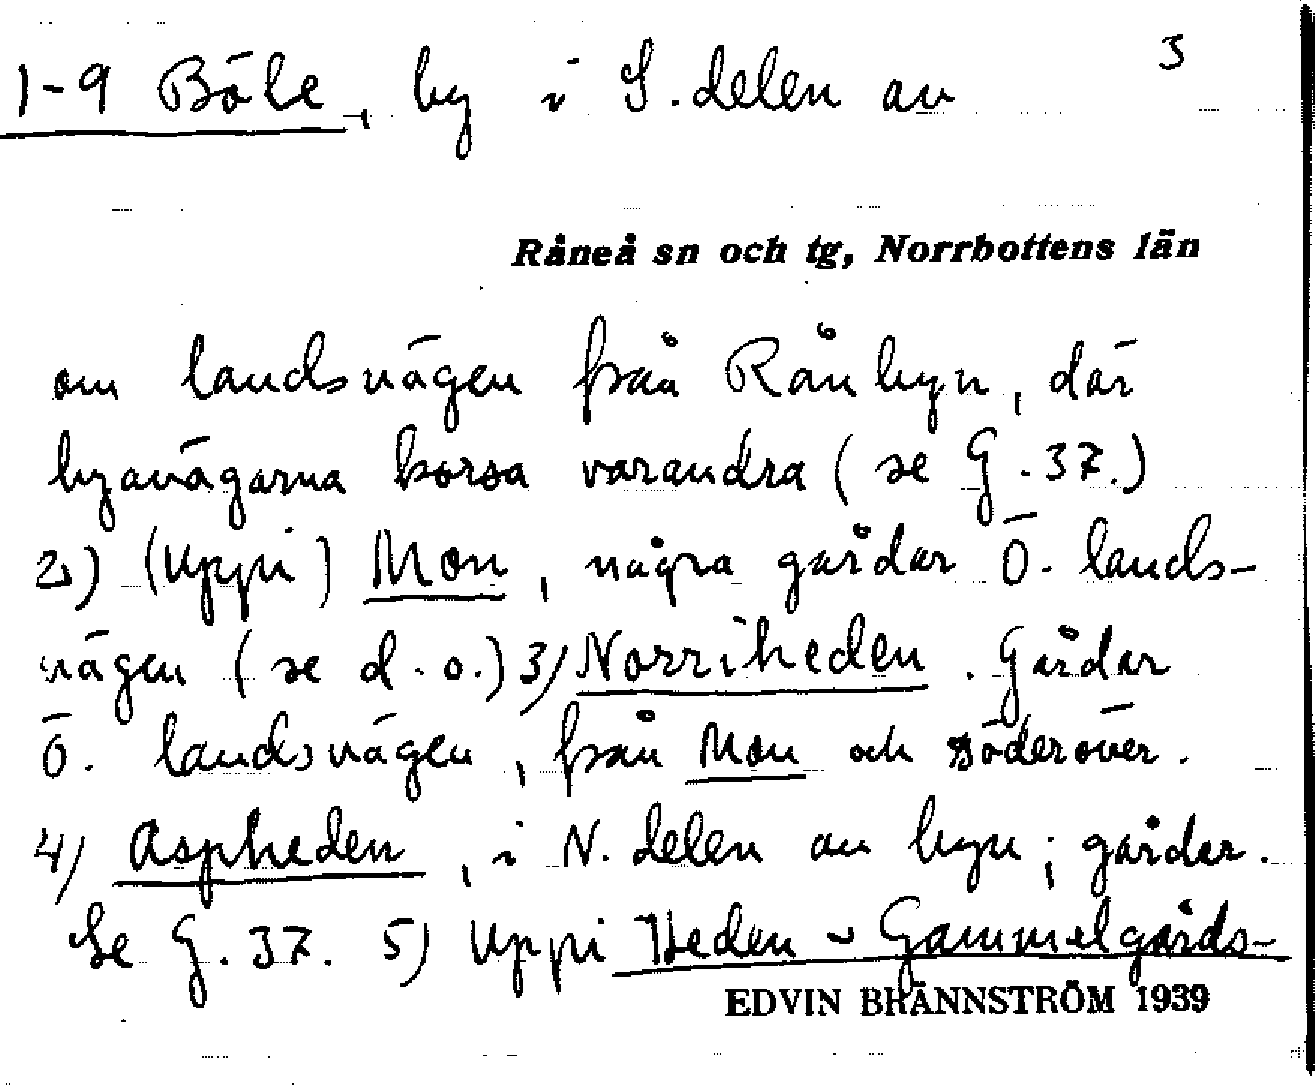 3
1-9 Böle, by i S. delen av
Råneå sn och tg, Norrbottens län
om landsvägen från Rånbyn, där
byavägarna korsa varandra (se G. 37.)
2) (Uppi) Mon, några gårdar Ö. lands-
vägen (se d. o.) 3) Norriheden. Gårdar
Ö. landsvägen, från Mon och söderöver.
4) Aspheden, i N. delen av byn; gårdar.
Se G. 37. 5) Uppi Heden - Gammelgårds-
EDVIN BRÄNNSTRÖM 1939